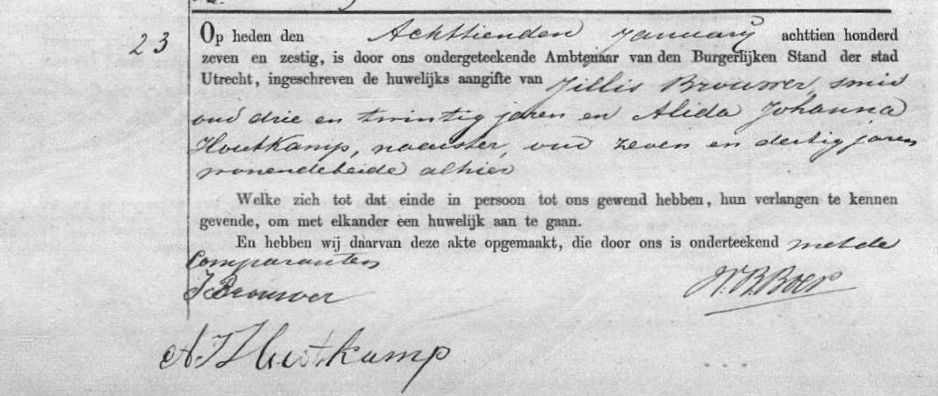 23 Op heden den Achttienden January achttien honderd
zeven en zestig, is door ons ondergeteekende Ambtenaar van den Burgerlijken Stand der stad
Utrecht, ingeschreven de huwelijks aangifte van Jillis Brouwer, smid
oud drie en twintig jaren en Alida Johanna
Houtkamp, naaister, oud zeven en dertig jaren
wonende beide alhier
Welke zich tot dat einde in persoon tot ons gewend hebben, hun verlangen te kennen
gevende, om met elkander een huwelijk aan te gaan.
En hebben wij daarvan deze akte opgemaakt, die door ons is onderteekend met de
Comparanten
J Brouwer W. B. Boer
A J Houtkamp